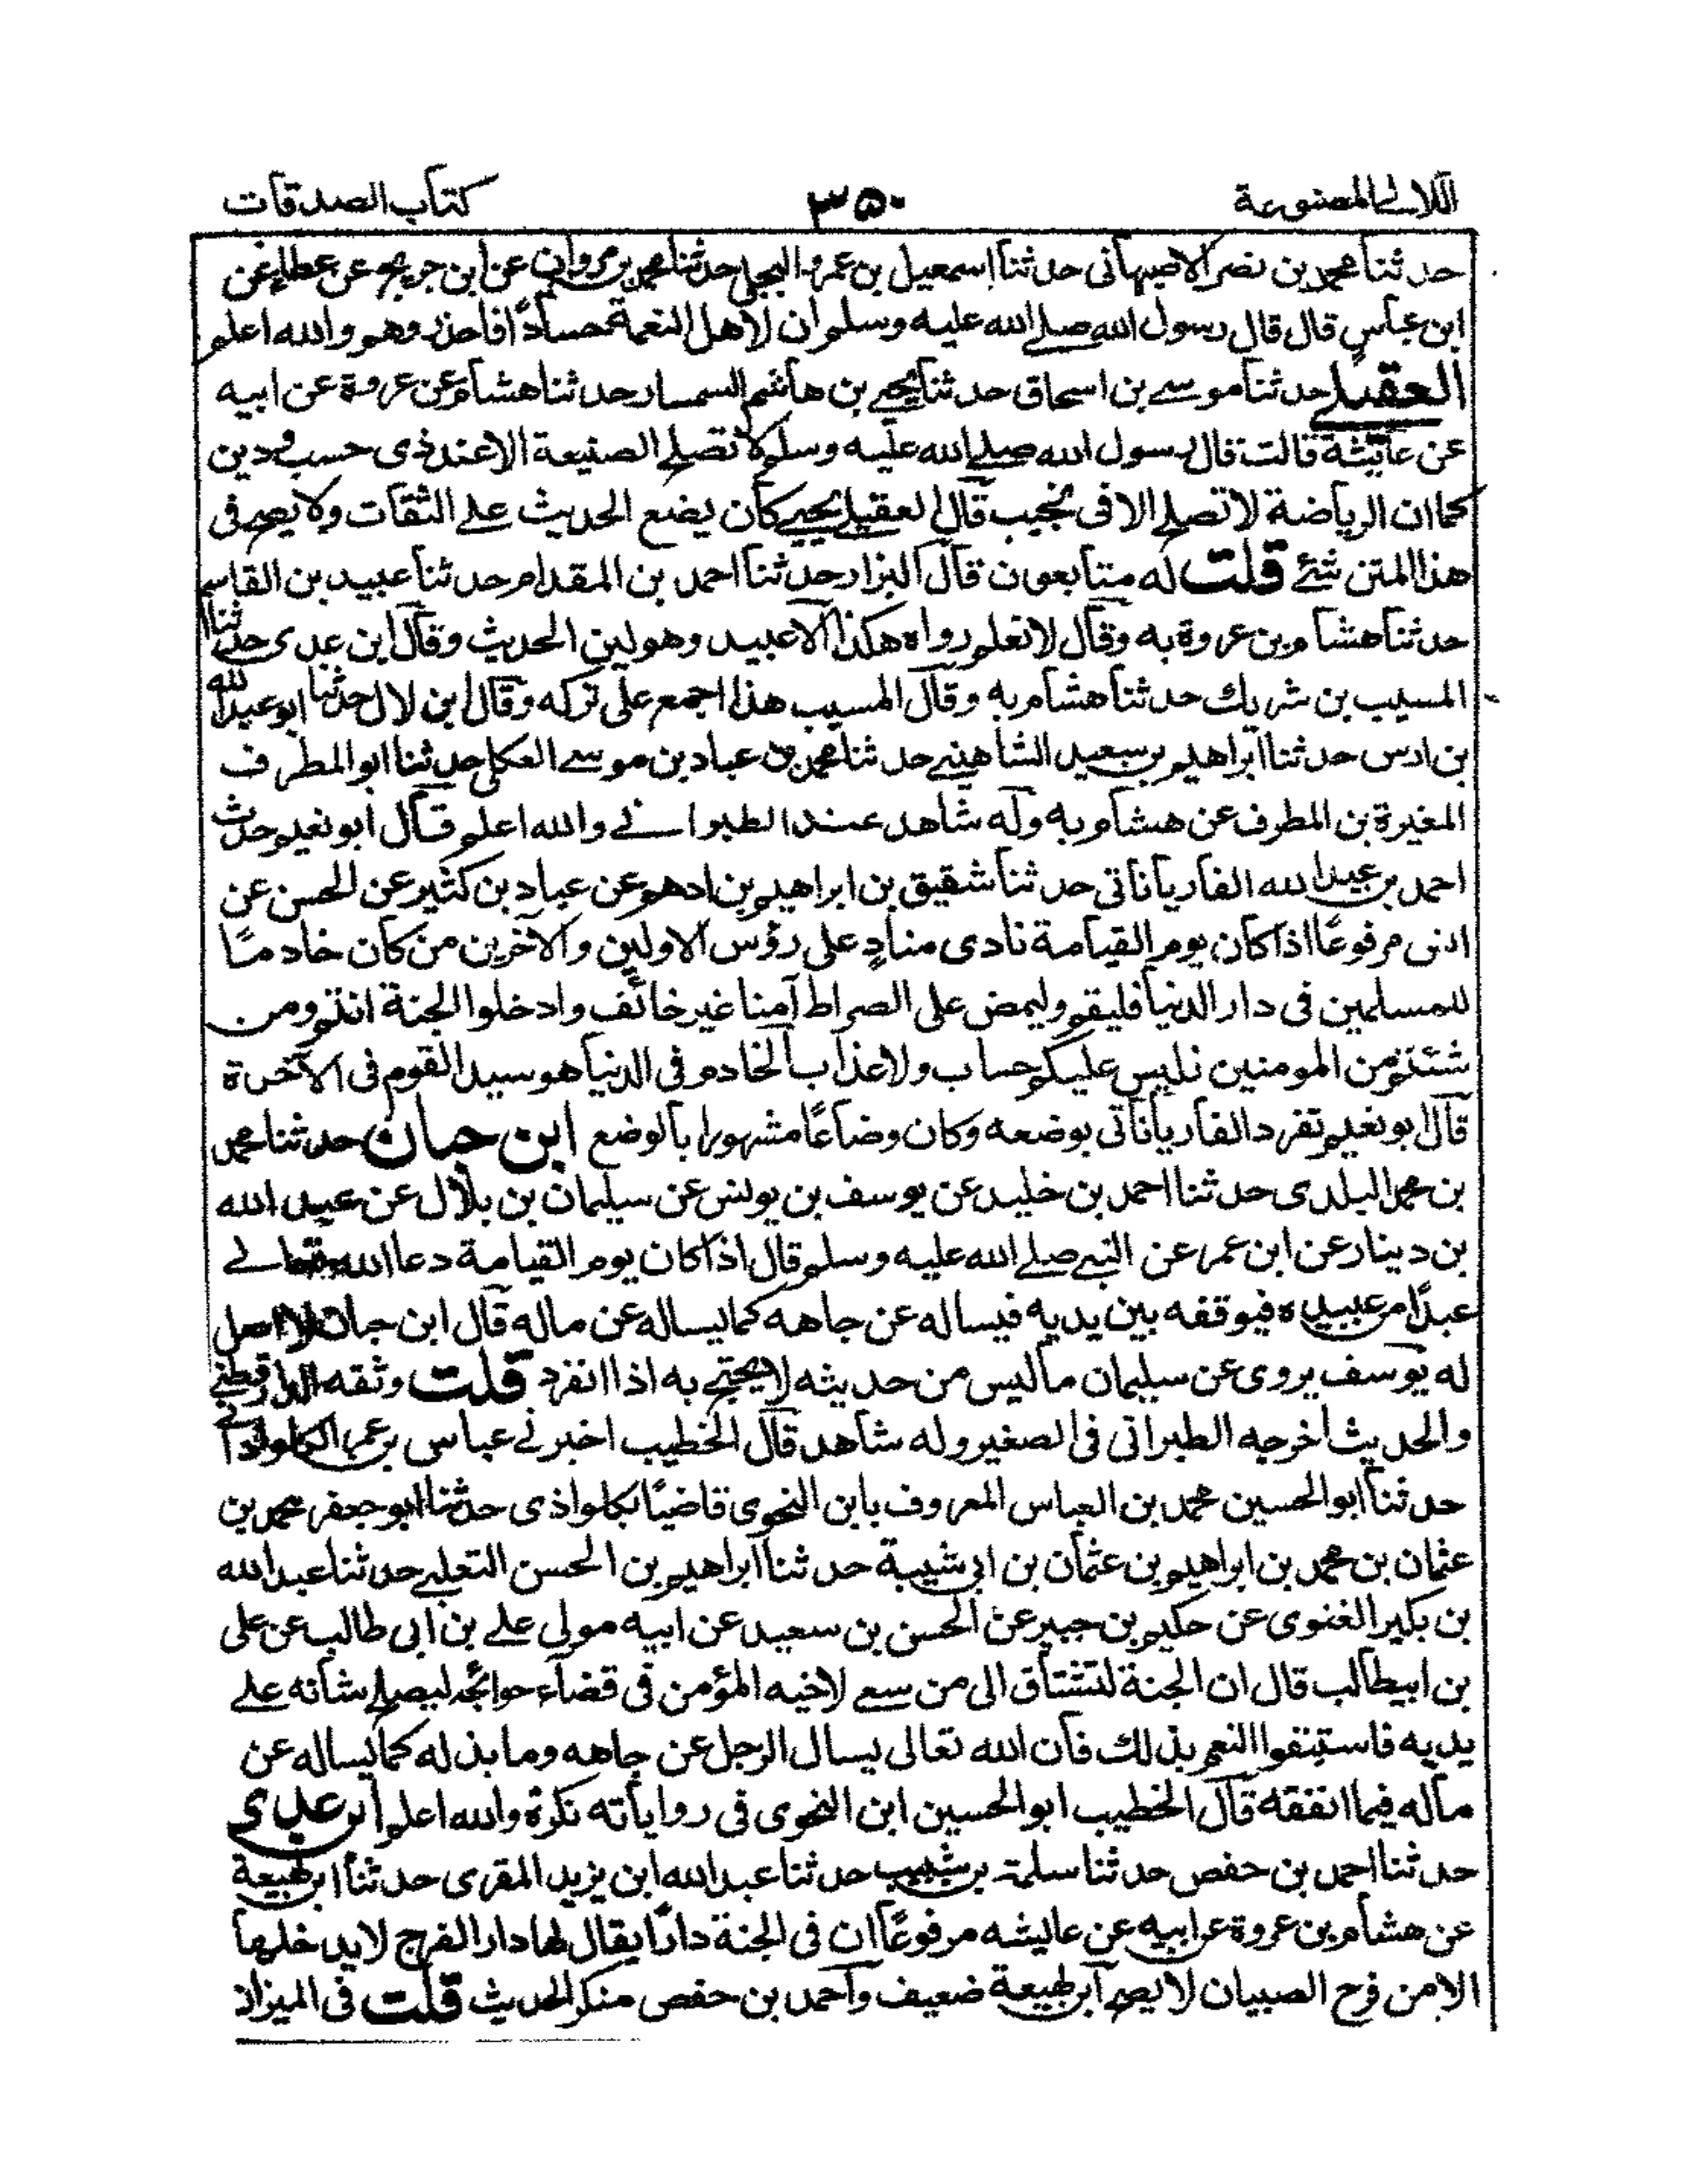 اللآلے المصنوعة
٣٥٠
كتاب الصدقات
حدثنا محمد بن نصر الاصبهانى حدثنا اسمعيل بن عمرو البجلى حدثنا محمد بن مروان عن ابن جريج عن عطاء عن
ابن عباس قال قال رسول الله صلے الله عليه وسلم ان لاهل النعمة حسادًا فاحذروهم والله اعلم
العقيلے حدثنا موسے بن اسحاق حدثنا يحيے بن هاشم السمسار حدثنا هشام عن عروة عن ابيه
عن عائشة قالت قال رسول الله صلے الله عليه وسلم لا تصلح الصنيعة الا عند ذى حسب ودين
كما ان الرياضة لا تصلح الا فى نجيب قال العقيلے يحيے كان يضع الحديث علے الثقات ولا يصح فى
هذا المتن شئے قلت له متابعون قال البزار حدثنا احمد بن المقدام حدثنا عبيد بن القاسم
حدثنا هشام بن عروة به وقال لا نعلم رواه هكذا الا عبيد وهو لين الحديث وقال ابن عدى حدثنا
المسيب بن شريك حدثنا هشام به وقال المسيب هذا اجمع على تركه وقال ابن لال حدثنا ابو عبد الله
بن ادس حدثنا ابراهيم بن سعيد الشاهينے حدثنا محمد بن عباد بن موسے العكلى حدثنا ابو المطرف
المغيرة بن المطرف عن هشام به وله شاهد عند الطبرانے والله اعلم قال ابو نعيم حدث
احمد بن عبد الله الفارياناتى حدثنا شقيق بن ابراهيم بن ادهم عن عباد بن كثير عن الحسن عن
انس مرفوعًا اذا كان يوم القيامة نادى منادٍ على رؤس الاولين والآخرين من كان خادمًا
للمسلمين فى دار الدنيا فليقم وليمض على الصراط آمنا غير خائف وادخلوا الجنة انتم ومن
شئتم من المومنين فليس عليكم حساب ولا عذاب الخادم فى الدنيا هو سيد القوم فى الآخرة
قال ابو نعيم تفرد الفارياناتى بوضعه وكان وضاعًا مشهورا بالوضع ابن حبان حدثنا محمد
بن محمد البلدى حدثنا احمد بن خليد عن يوسف بن يونس عن سليمان بن بلال عن عبد الله
بن دينار عن ابن عمر عن النبے صلے الله عليه وسلم قال اذا كان يوم القيامة دعا الله تعالے
عبدًا من عبيده فيوقفه بين يديه فيساله عن جاهه كما يساله عن ماله قال ابن حبان لا اصل
له يوسف يروى عن سليمان ما ليس من حديثه لا يحتج به اذا انفرد قلت وثقه الدارقطنے
والحديث اخرجه الطبرانى فى الصغير وله شاهد قال الخطيب اخبرنے عباس بن عمر الكلواذانے
حدثنا ابو الحسين محمد بن العباس المعروف بابن النحوى قاضيًا بكلواذى حدثنا ابو جعفر محمد بن
عثمان بن محمد بن ابراهيم بن عثمان بن ابى شيبة حدثنا ابراهيم بن الحسن التعلبے حدثنا عبد الله
بن بكير الغنوى عن حكيم بن جبير عن الحسن بن سعيد عن ابيه مولى علے بن ابى طالب عن على
بن ابيطالب قال ان الجنة لتشتاق الى من سعے لاخيه المؤمن فى قضاء حوائجه ليصلح شانه علے
يديه فاستبقوا النعم بذلك فان الله تعالى يسال الرجل عن جاهه وما بذله كما يساله عن
ماله فيما انفقه قال الخطيب ابو الحسين ابن النحوى فى رواياته نكرة والله اعلم ابن عدى
حدثنا احمد بن حفص حدثنا سلمة بن شبيب حدثنا عبد الله ابن يزيد المقرى حدثنا ابن لهيعة
عن هشام بن عروة عن ابيه عن عايشه مرفوعًا ان فى الجنة دارًا يقال لها دار الفرح لا يدخلها
الا من فرح الصبيان لا يصح ابن لهيعة ضعيف واحمد بن حفص منكر الحديث قلت فى الميزان